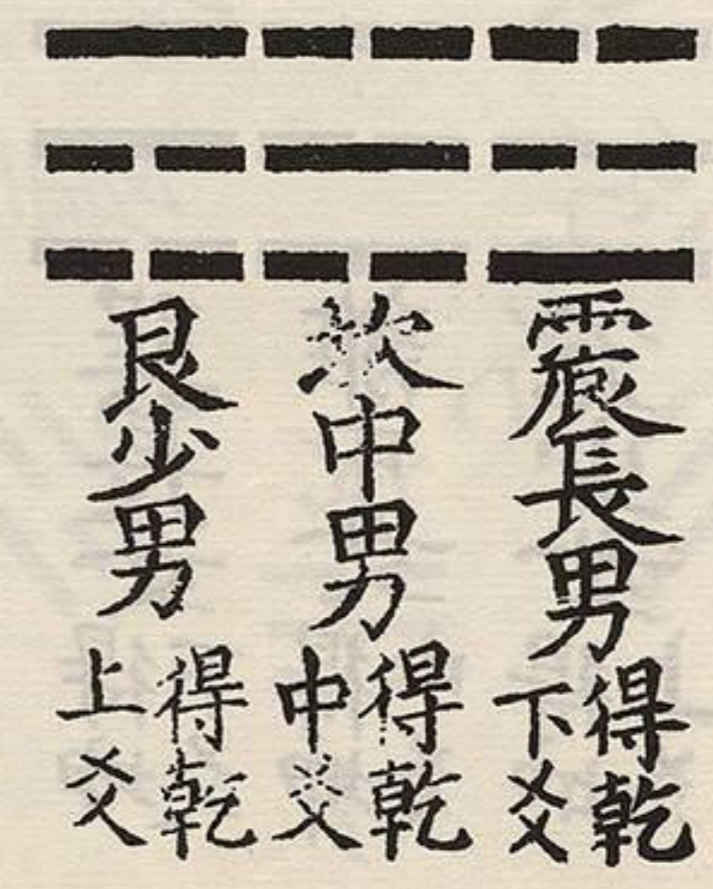 震長男得乾下爻
坎中男得乾中爻
艮少男得乾上爻